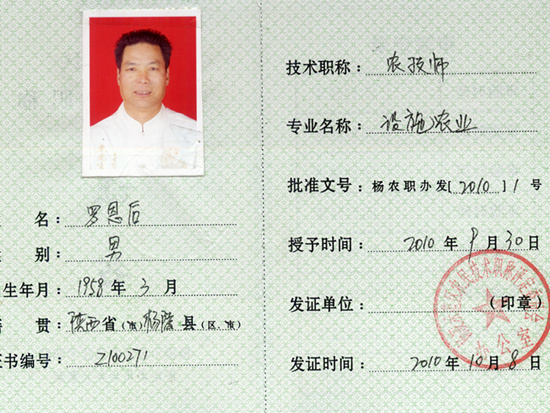 名：罗恩后
别：男
生年月：1958年3月
贯：陕西省(市)杨陵县(区、市)
证书编号：2100271
技术职称：农技师
专业名称：设施农业
批准文号：杨农职办发[2010]1号
授予时间：2010年9月30日
发证单位：(印章)
办公室
发证时间：2010年10月8日